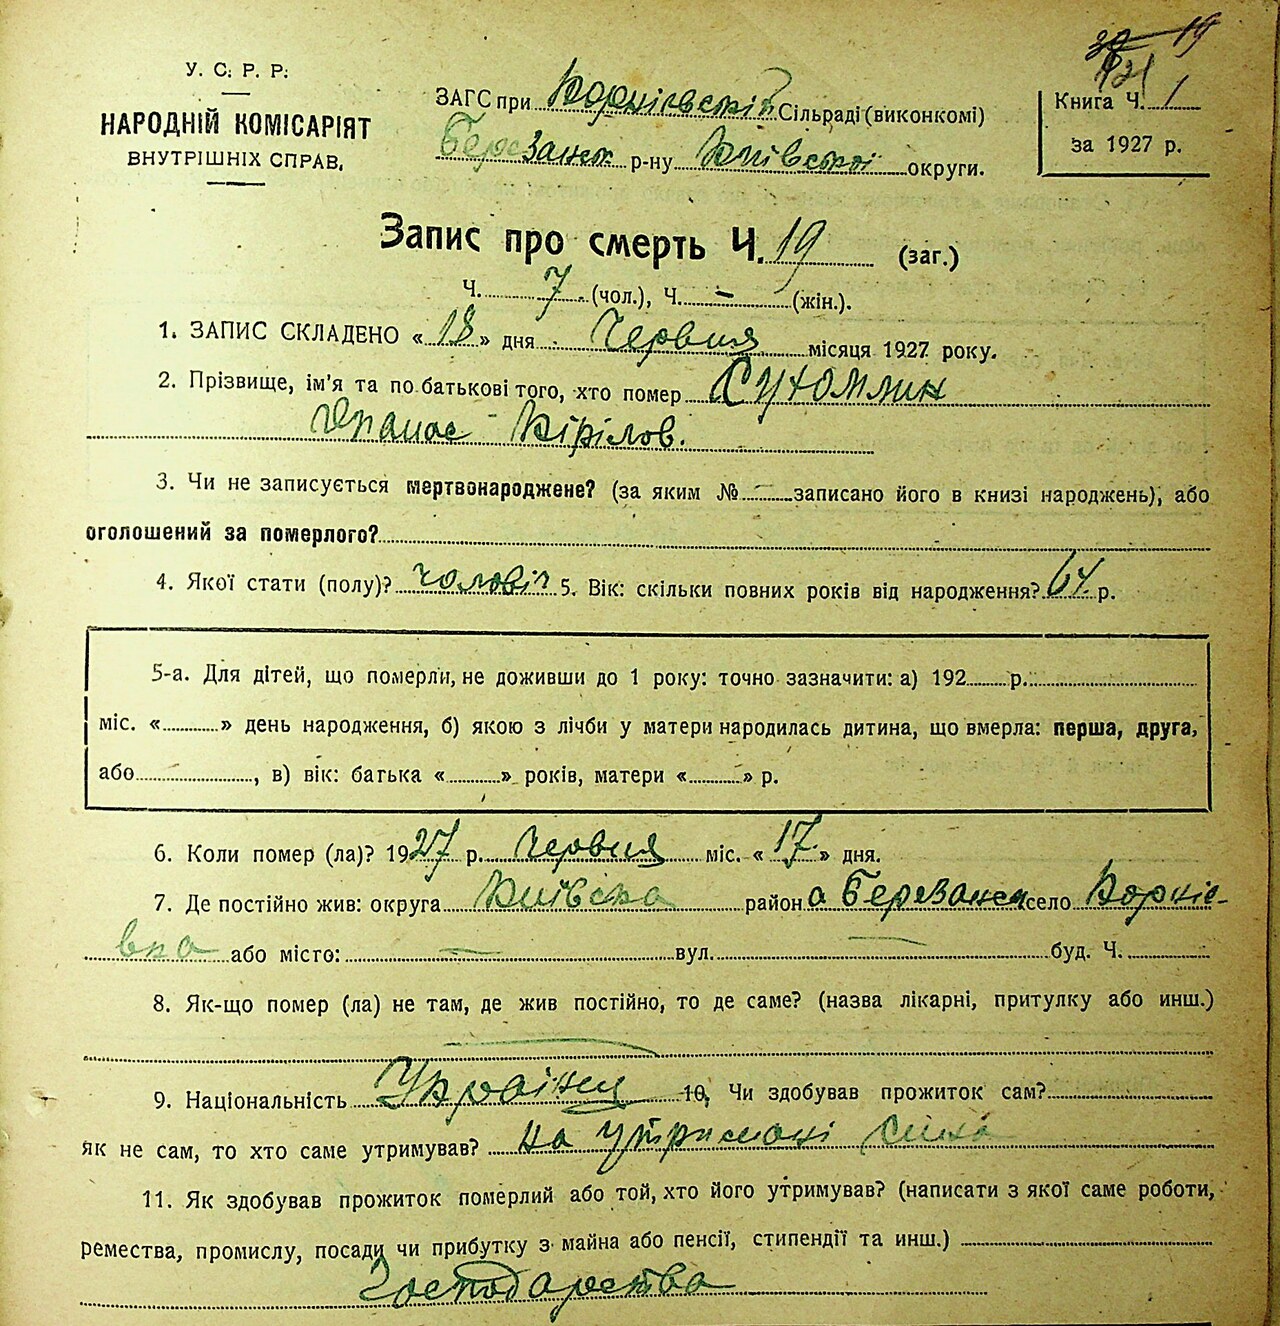 19
У. С. Р. Р.
НАРОДНІЙ КОМІСАРІЯТ
ВНУТРІШНІХ СПРАВ.
ЗАГС при Корнієвській Сільраді (виконкомі)
Березанськ р-ну Київської округи.
Книга Ч. 1
за 1927 р.
Запис про смерть Ч. 19 (заг.)
Ч. 7 (чол.), Ч. – (жін.).
1. ЗАПИС СКЛАДЕНО «18» дня Червня місяця 1927 року.
2. Прізвище, ім'я та по батькові того, хто помер Сухомлин
Опанас Кірілов.
3. Чи не записується мертвонароджене? (за яким № – записано його в книзі народжень), або
оголошений за померлого?
4. Якої стати (полу)? чоловіч 5. Вік: скільки повних років від народження? 64 р.
5-а. Для дітей, що померли, не доживши до 1 року: точно зазначити: а) 192 р.
міс. « » день народження, б) якою з лічби у матери народилась дитина, що вмерла: перша, друга,
або , в) вік: батька « » років, матери « » р.
6. Коли помер (ла)? 1927 р. Червня міс. «17» дня.
7. Де постійно жив: округа Київска район а Березанск село Корніє-
вка або місто: – вул. – буд. Ч.
8. Як-що помер (ла) не там, де жив постійно, то де саме? (назва лікарні, притулку або инш.)
9. Національність Українец 10, Чи здобував прожиток сам?
як не сам, то хто саме утримував? на утримані сина
11. Як здобував прожиток померлий або той, хто його утримував? (написати з якої саме роботи,
ремества, промислу, посади чи прибутку з майна або пенсії, стипендії та инш.)
Господарства